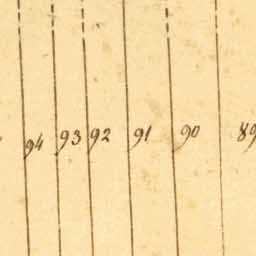 94 93 92 91 90 89